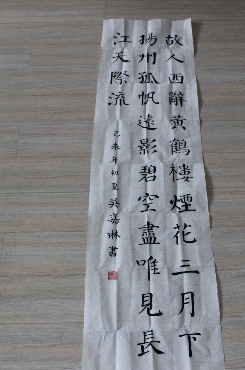 故人西辭黃鶴樓煙花三月下
揚州孤帆遠影碧空盡唯見長
江天際流
乙未年初夏吳嘉琳書